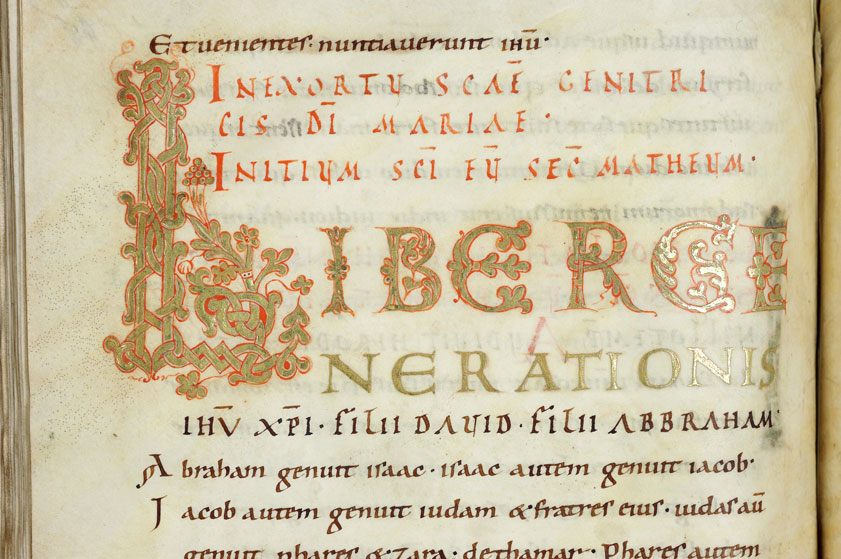 Et uenientes · nuntiauerunt ihu̅ ·
IN EXORTU SCAE̅ GENITRI
CIS DI̅ MARIAE ·
INITIUM SCI̅ EU̅ SEC̅ MATHEUM ·
LIBER GE
NERATIONIS
IHV̅ XP̅I · FILII DAUID · FILII ABBRAHAM ·
Abraham genuit isaac · isaac autem genuit iacob ·
Iacob autem genuit iudam & fratres eius · iudas au̅
genuit phares & zara · dethamar · Phares autem